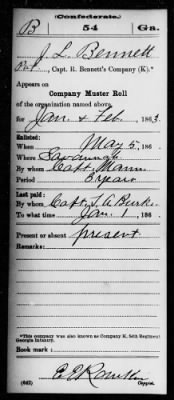 (Confederate.)
B 54 Ga.
J. L. Bennett
Pvt., Capt. R. Bennett's Company (K).*
Appears on
Company Muster Roll
of the organization named above,
for Jan & Feb, 1863.
Enlisted:
When May 5, 186 .
Where Savannah
By whom Capt. Mann
Period 3 years
Last paid:
By whom Capt. J. A. Burke
To what time Jan. 1, 186 .
Present or absent present
Remarks:
*This company was also known as Company K, 54th Regiment
Georgia Infantry.
Book mark:
(642) Copyist.